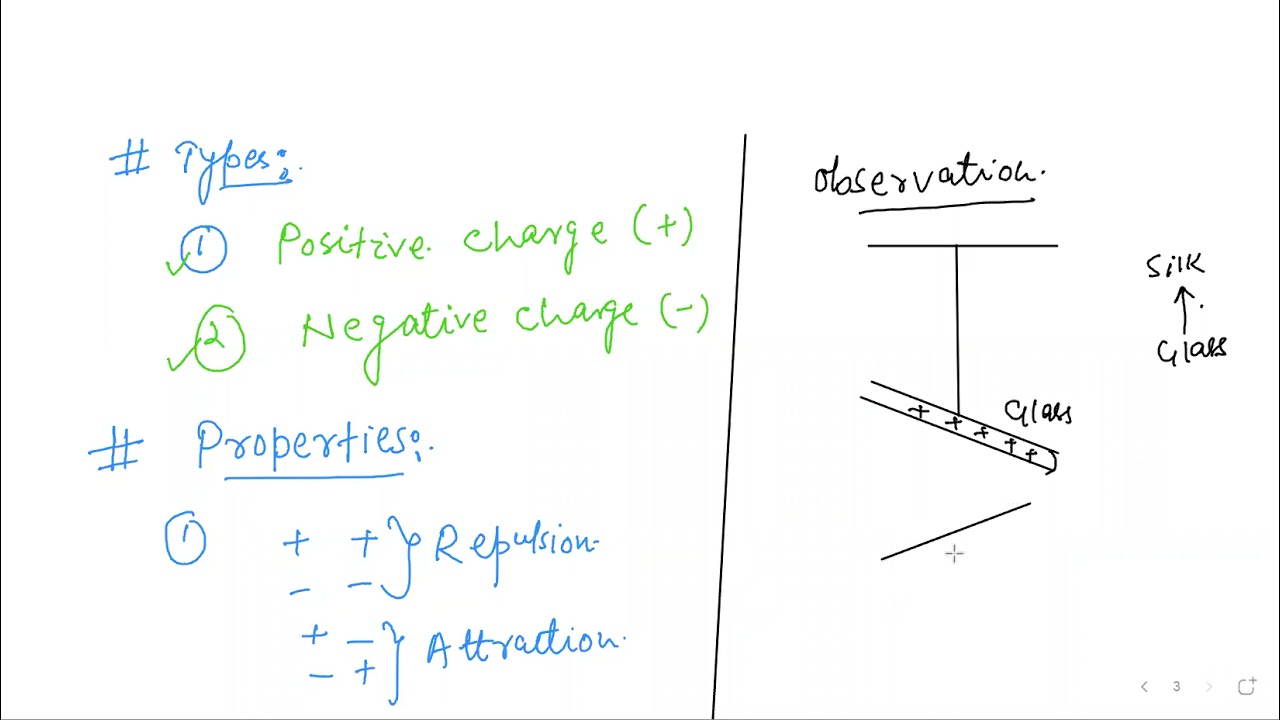 # Types:
① Positive charge (+)
② Negative charge (-)
# Properties:
① + + } Repulsion
- -
+ - } Attraction
- +
Observation.
Silk
↑
Glass
Glass
+ + + + +
3